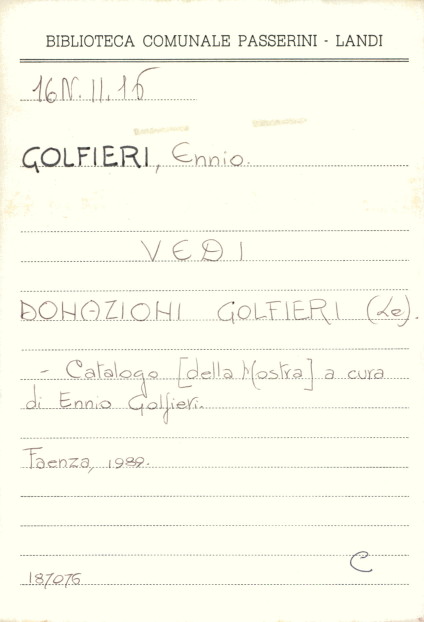 BIBLIOTECA COMUNALE PASSERINI - LANDI
16N.II.15
GOLFIERI, Ennio.
VEDI
DONAZIONI GOLFIERI (Le).
- Catalogo [della Mostra] a cura
di Ennio Golfieri.
Faenza, 1989.
C
187076